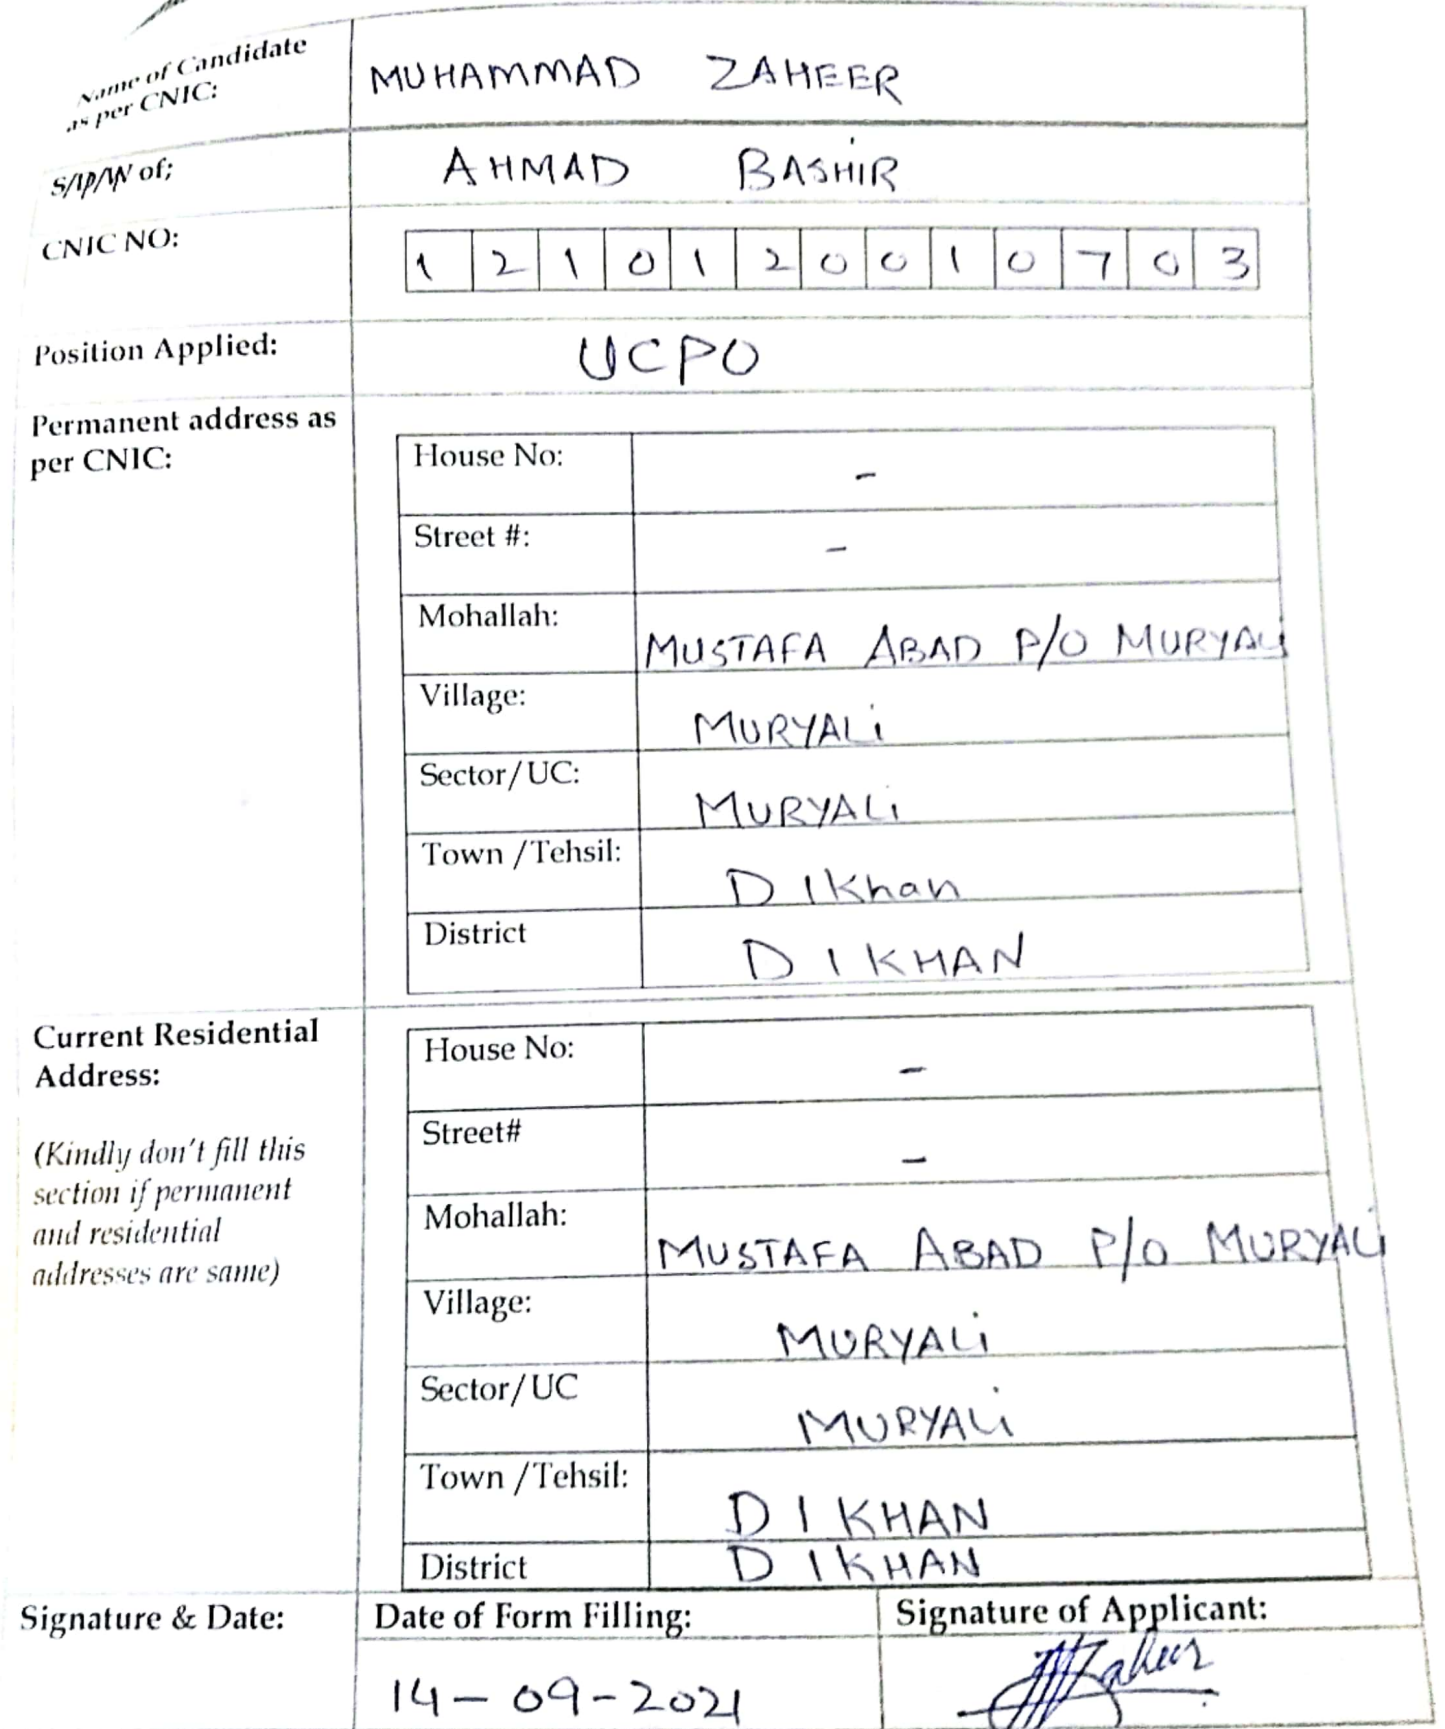 Name of Candidate MUHAMMAD ZAHEER
as per CNIC:
S/D/W of; AHMAD BASHIR
CNIC NO: 1 2 1 0 1 2 0 0 1 0 7 0 3
Position Applied: UCPO
Permanent address as
per CNIC:
House No: -
Street #: -
Mohallah: MUSTAFA ABAD P/O MURYALi
Village: MURYALi
Sector/UC: MURYALi
Town /Tehsil: D I Khan
District D I KHAN
Current Residential
Address:
(Kindly don't fill this
section if permanent
and residential
addresses are same)
House No: -
Street# -
Mohallah: MUSTAFA ABAD P/O MURYALi
Village: MURYALi
Sector/UC MURYALi
Town /Tehsil: D I KHAN
District D I KHAN
Signature & Date: Date of Form Filling: Signature of Applicant:
14-09-2021 Zaheer